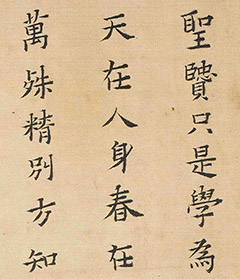 聖贒只是學為
天在人身春在
萬殊精別方知